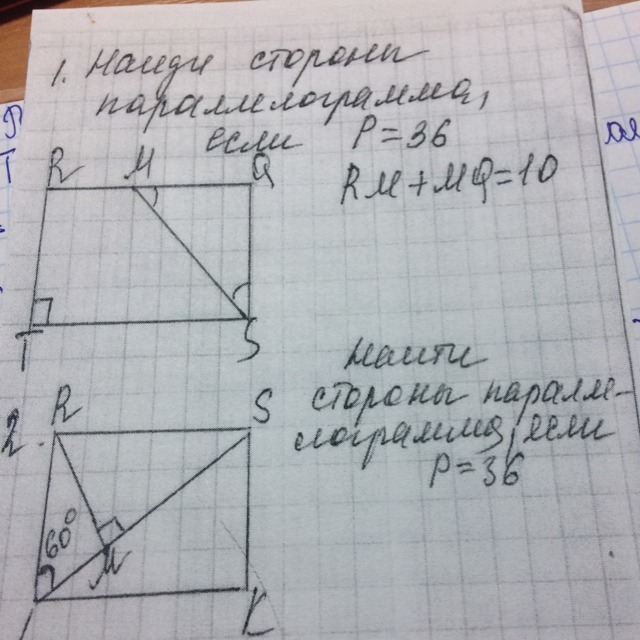 1. Найди стороны
параллелограмма,
если P=36
R M Q RM+MQ=10
T S
Найти
2. R S стороны паралле-
лограмма, если
P=36
60°
M